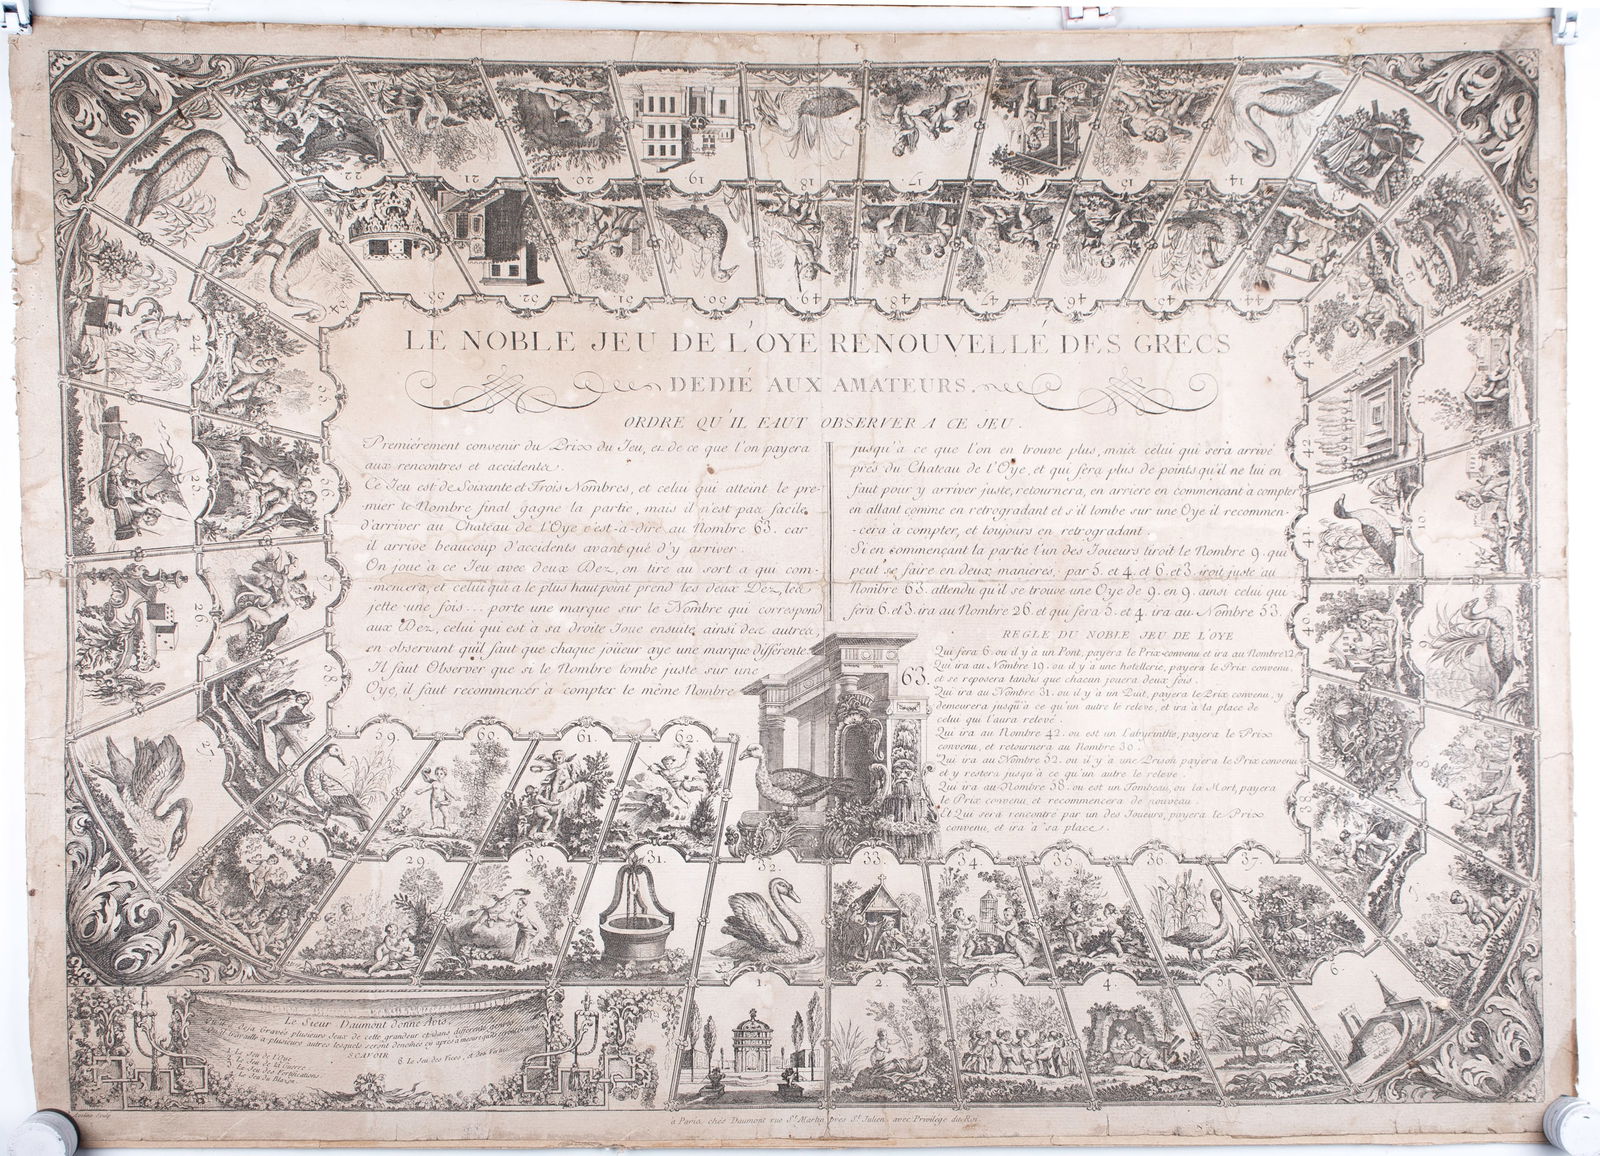 LE NOBLE JEU DE L'OYE RENOUVELLÉ DES GRECS
DEDIÉ AUX AMATEURS.
ORDRE QU'IL FAUT OBSERVER A CE JEU.
Premiérement convenir du Prix du Jeu, et de ce que l'on payera
aux rencontres et accidents.
Ce Jeu est de Soixante et Trois Nombres, et celui qui atteint le pre-
mier le Nombre final gagne la partie, mais il n'est pas facile
d'arriver au Chateau de l'Oye c'est-à-dire au Nombre 63. car
il arrive beaucoup d'accidents avant que d'y arriver.
On joue à ce Jeu avec deux Dez, on tire au sort a qui com-
-mencera, et celui qui a le plus haut point prend les deux Dez, les
jette une fois... porte une marque sur le Nombre qui correspond
aux Dez, celui qui est à sa droite Joue ensuite, ainsi des autres,
en observant qu'il faut que chaque joüeur aye une marque différente.
Il faut Observer que si le Nombre tombe juste sur une
Oye, il faut recommencer à compter le même Nombre
jusqu'à ce que l'on en trouve plus, mais celui qui sera arrivé
près du Chateau de l'Oye, et qui fera plus de points qu'il ne lui en
faut pour y arriver juste, retournera, en arriere en commencant à compter
en allant comme en retrogradant et s'il tombe sur une Oye il recommen-
-cera à compter, et toujours en retrogradant.
Si en commençant la partie l'un des Joueurs tiroit le Nombre 9. qui
peut se faire en deux manieres, par 5. et 4. et 6. et 3. iroit juste au
Nombre 63. attendu qu'il se trouve une Oye de 9. en 9. ainsi celui qui
fera 6. et 3. ira au Nombre 26. et qui fera 5. et 4. ira au Nombre 53.
REGLE DU NOBLE JEU DE L'OYE
Qui fera 6. ou il y'a un Pont, payera le Prix convenu et ira au Nombre 12.
Qui ira au Nombre 19. ou il y'a une hotellerie, payera le Prix convenu,
et se reposera tandis que chacun jouera deux fois.
Qui ira au Nombre 31. ou il y'a un Puit, payera le Prix convenu, y
demeurera jusqu'à ce qu'un autre le releve, et ira à la place de
celui qui l'aura relevé.
Qui ira au Nombre 42. ou est un labyrinthe, payera le Prix
convenu, et retournera au Nombre 30.
Qui ira au Nombre 52. ou il y'a une Prison payera le Prix convenu
et y restera jusqu'à ce qu'un autre le releve.
Qui ira au Nombre 58. ou est un Tombeau, ou la Mort, payera
le Prix convenu, et recommencera de nouveau.
Et Qui sera rencontré par un des Joueurs, payera le Prix
convenu, et ira à sa place.
63.
22
21
20
19
18
17
16
15
14
53
52
51
50
49
48
47
46
45
44
24
25
26
27
54
55
56
57
58
43
42
41
40
38
12
11
10
9
8
59.
60.
61.
62.
28
29.
30.
31.
32.
33.
34.
35.
36.
37.
1
2
3
4.
5
6
Le Sieur Daumont donne Avis
SCAVOIR
1. Le Jeu de l'Oye
2. Le Jeu de la Guerre
3. Le Jeu des Fortifications
4. Le Jeu du Blason
6. Le Jeu des Vices, et des Vertus
à Paris, chés Daumont rue St. Martin près St. Julien, avec Privilège du Roi